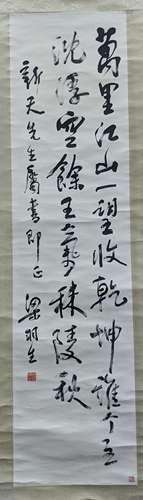 萬里江山一望收乾坤誰个主
沈浮空餘王氣秣陵秋
新天先生屬書即正
梁羽生